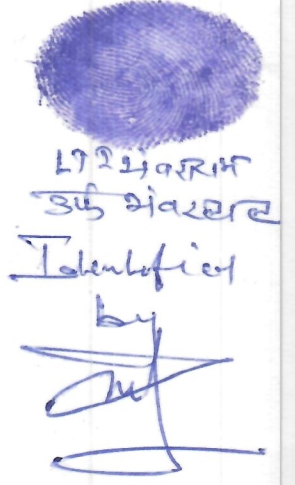 LTI भंवरराम
उर्फ भंवरलाल
Identified
by